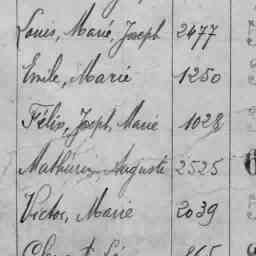 Louis, Marie, Joseph 2477
Emile, Marie 1250
Félix, Joseph, Marie 1028
Mathurin Auguste 2525
Victor, Marie 2039